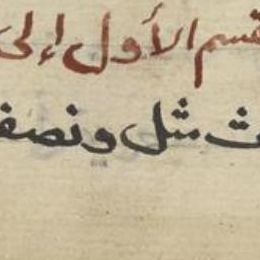 قسم الأول إلى
ث مثل ونصف